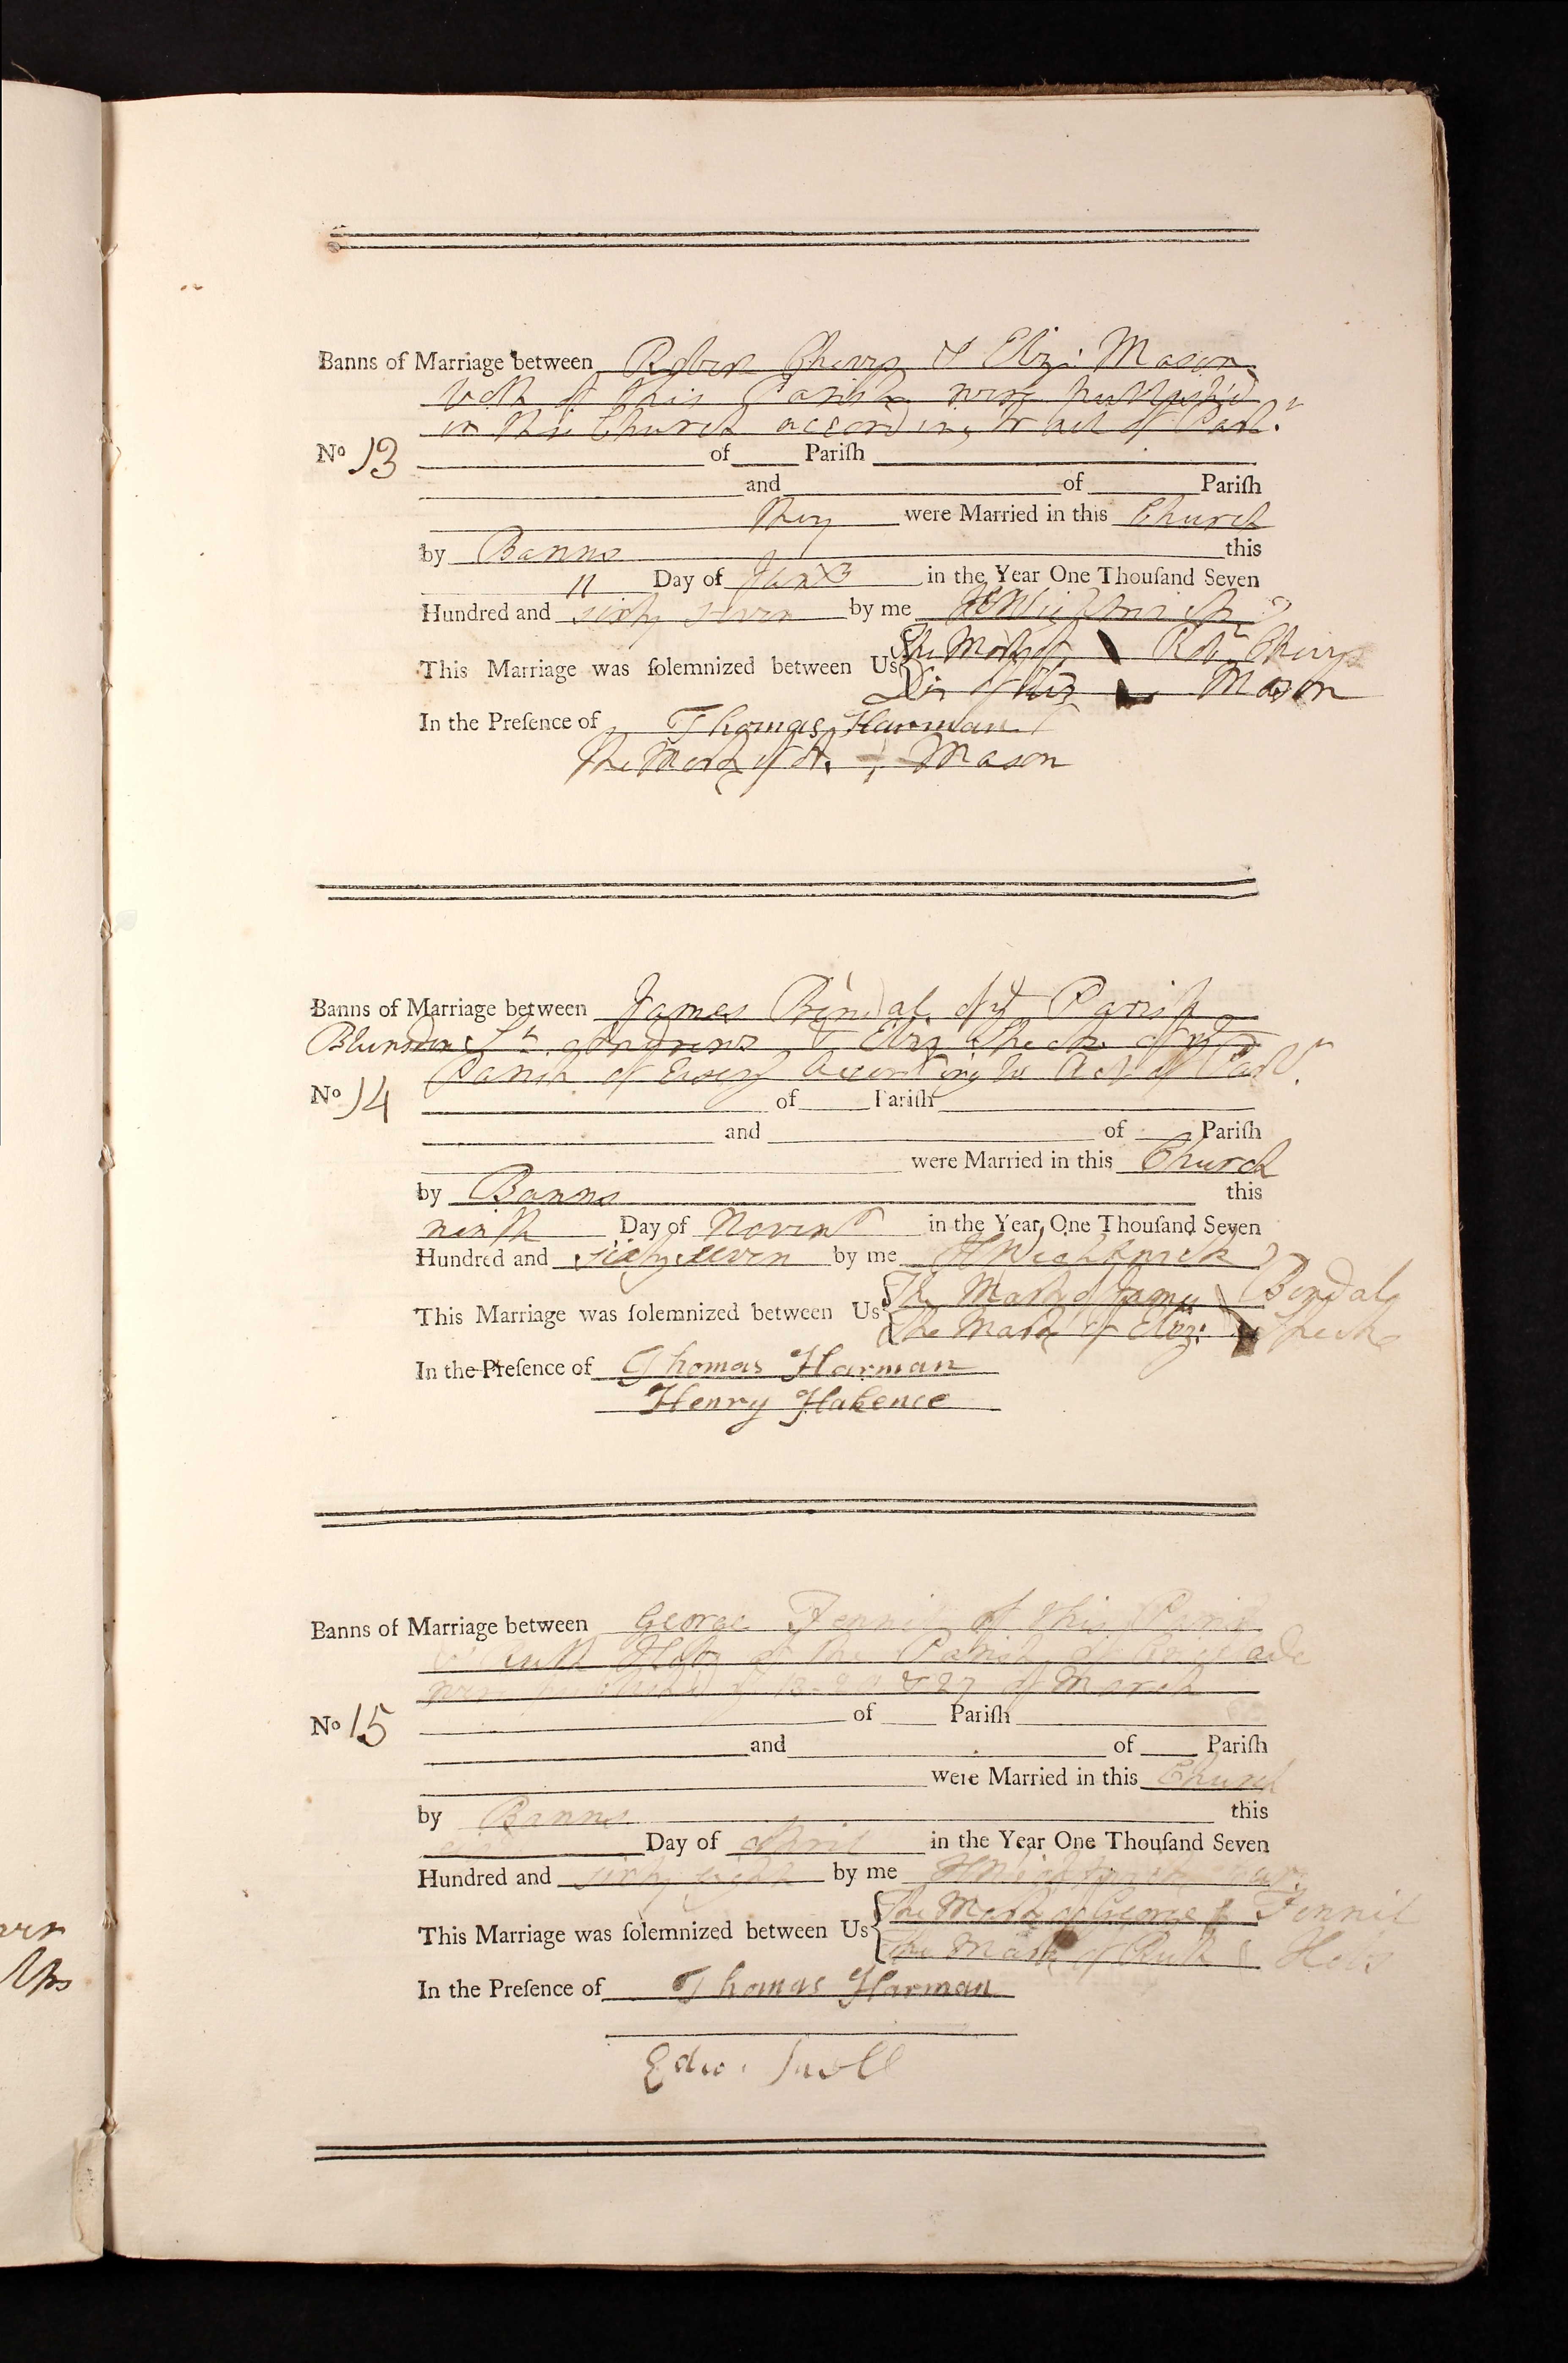 Banns of Marriage between Robert Cherry & Eliz: Mason
both of this Parish were published
in this Church according to act of Parl.
No 13 of Parish
and of Pariſh
they were Married in this Church
by Banns this
11 Day of in the Year One Thouſand Seven
Hundred and sixty seven by me
This Marriage was ſolemnized between Us The Mark of Robt Cherry
of Eliz Mason
In the Preſence of Thomas Harman
the Mark of Mason
Banns of Marriage between James Bindal of ye Pariſh
Blunsdon St Andrews & Eliz of ye
Parish of according to Act of Parl
No 14 of Pariſh
and of Pariſh
were Married in this Church
by Banns this
ninth Day of Novem in the Year One Thouſand Seven
Hundred and sixty seven by me
This Marriage was ſolemnized between Us The Mark of James Bindal
the Mark of Eliz:
In the Preſence of Thomas Harman
Henry Habence
Banns of Marriage between George Fennil of this Parish
& Ruth of the Parish of Cricklade
were published ye 13 20 & 27 of March
No 15 of Pariſh
and of Pariſh
were Married in this Church
by Banns this
Day of April in the Year One Thouſand Seven
Hundred and sixty eight by me
This Marriage was ſolemnized between Us The Mark of George Fennil
The Mark of Ruth
In the Preſence of Thomas Harman
Edw.